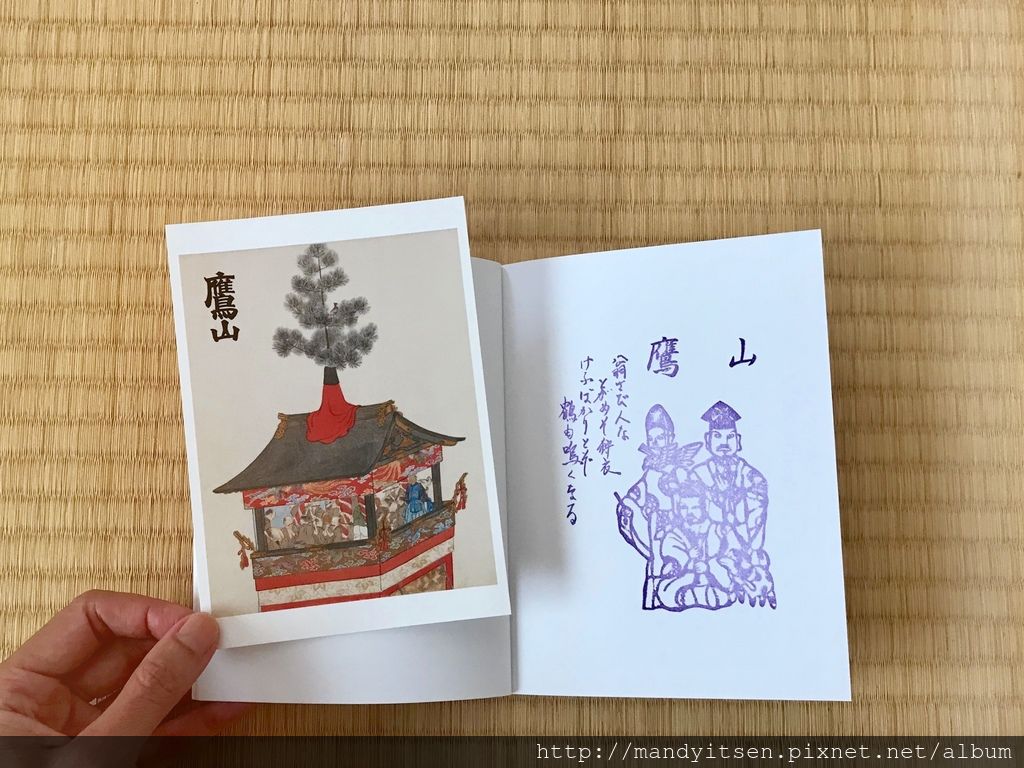 鷹山
鷹 山
翁さび人な
とがめそ狩衣
けふばかりとぞ
鶴も鳴くなる
http://mandyitsen.pixnet.net/album